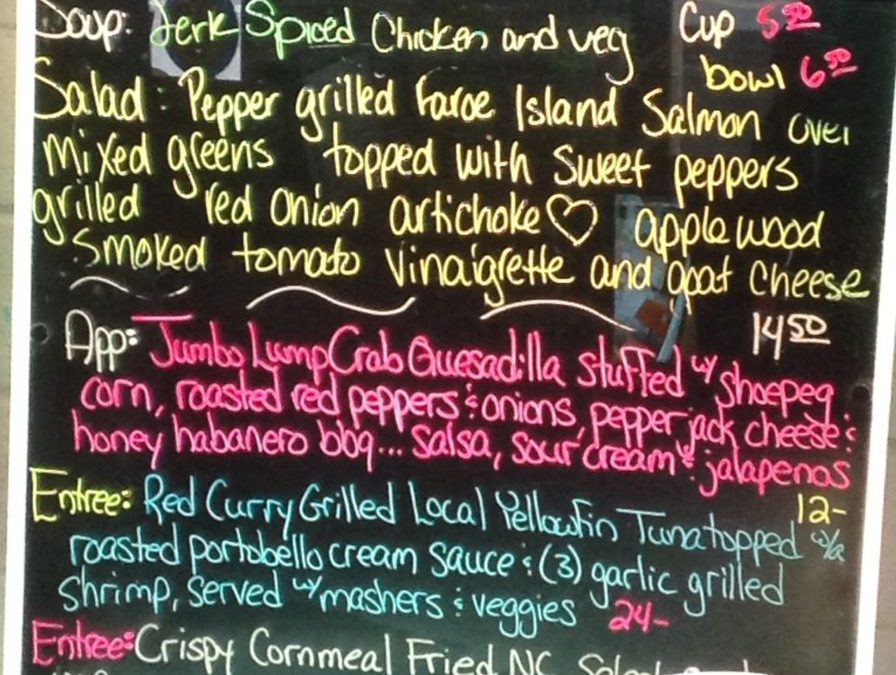 Soup: Jerk Spiced Chicken and veg Cup 5.50
bowl 6.50
Salad: Pepper grilled Faroe Island Salmon over
mixed greens topped with sweet peppers
grilled red onion artichoke♡ applewood
smoked tomato vinaigrette and goat cheese
14.50
App: Jumbo Lump Crab Quesadilla stuffed w/ shoepeg
corn, roasted red peppers & onions, pepper jack cheese &
honey habanero bbq... salsa, sour cream & jalapenos
12-
Entree: Red Curry Grilled Local Yellowfin Tuna topped w/a
roasted portobello cream sauce & (3) garlic grilled
shrimp, served w/ mashers & veggies 24-
Entree: Crispy Cornmeal Fried NC